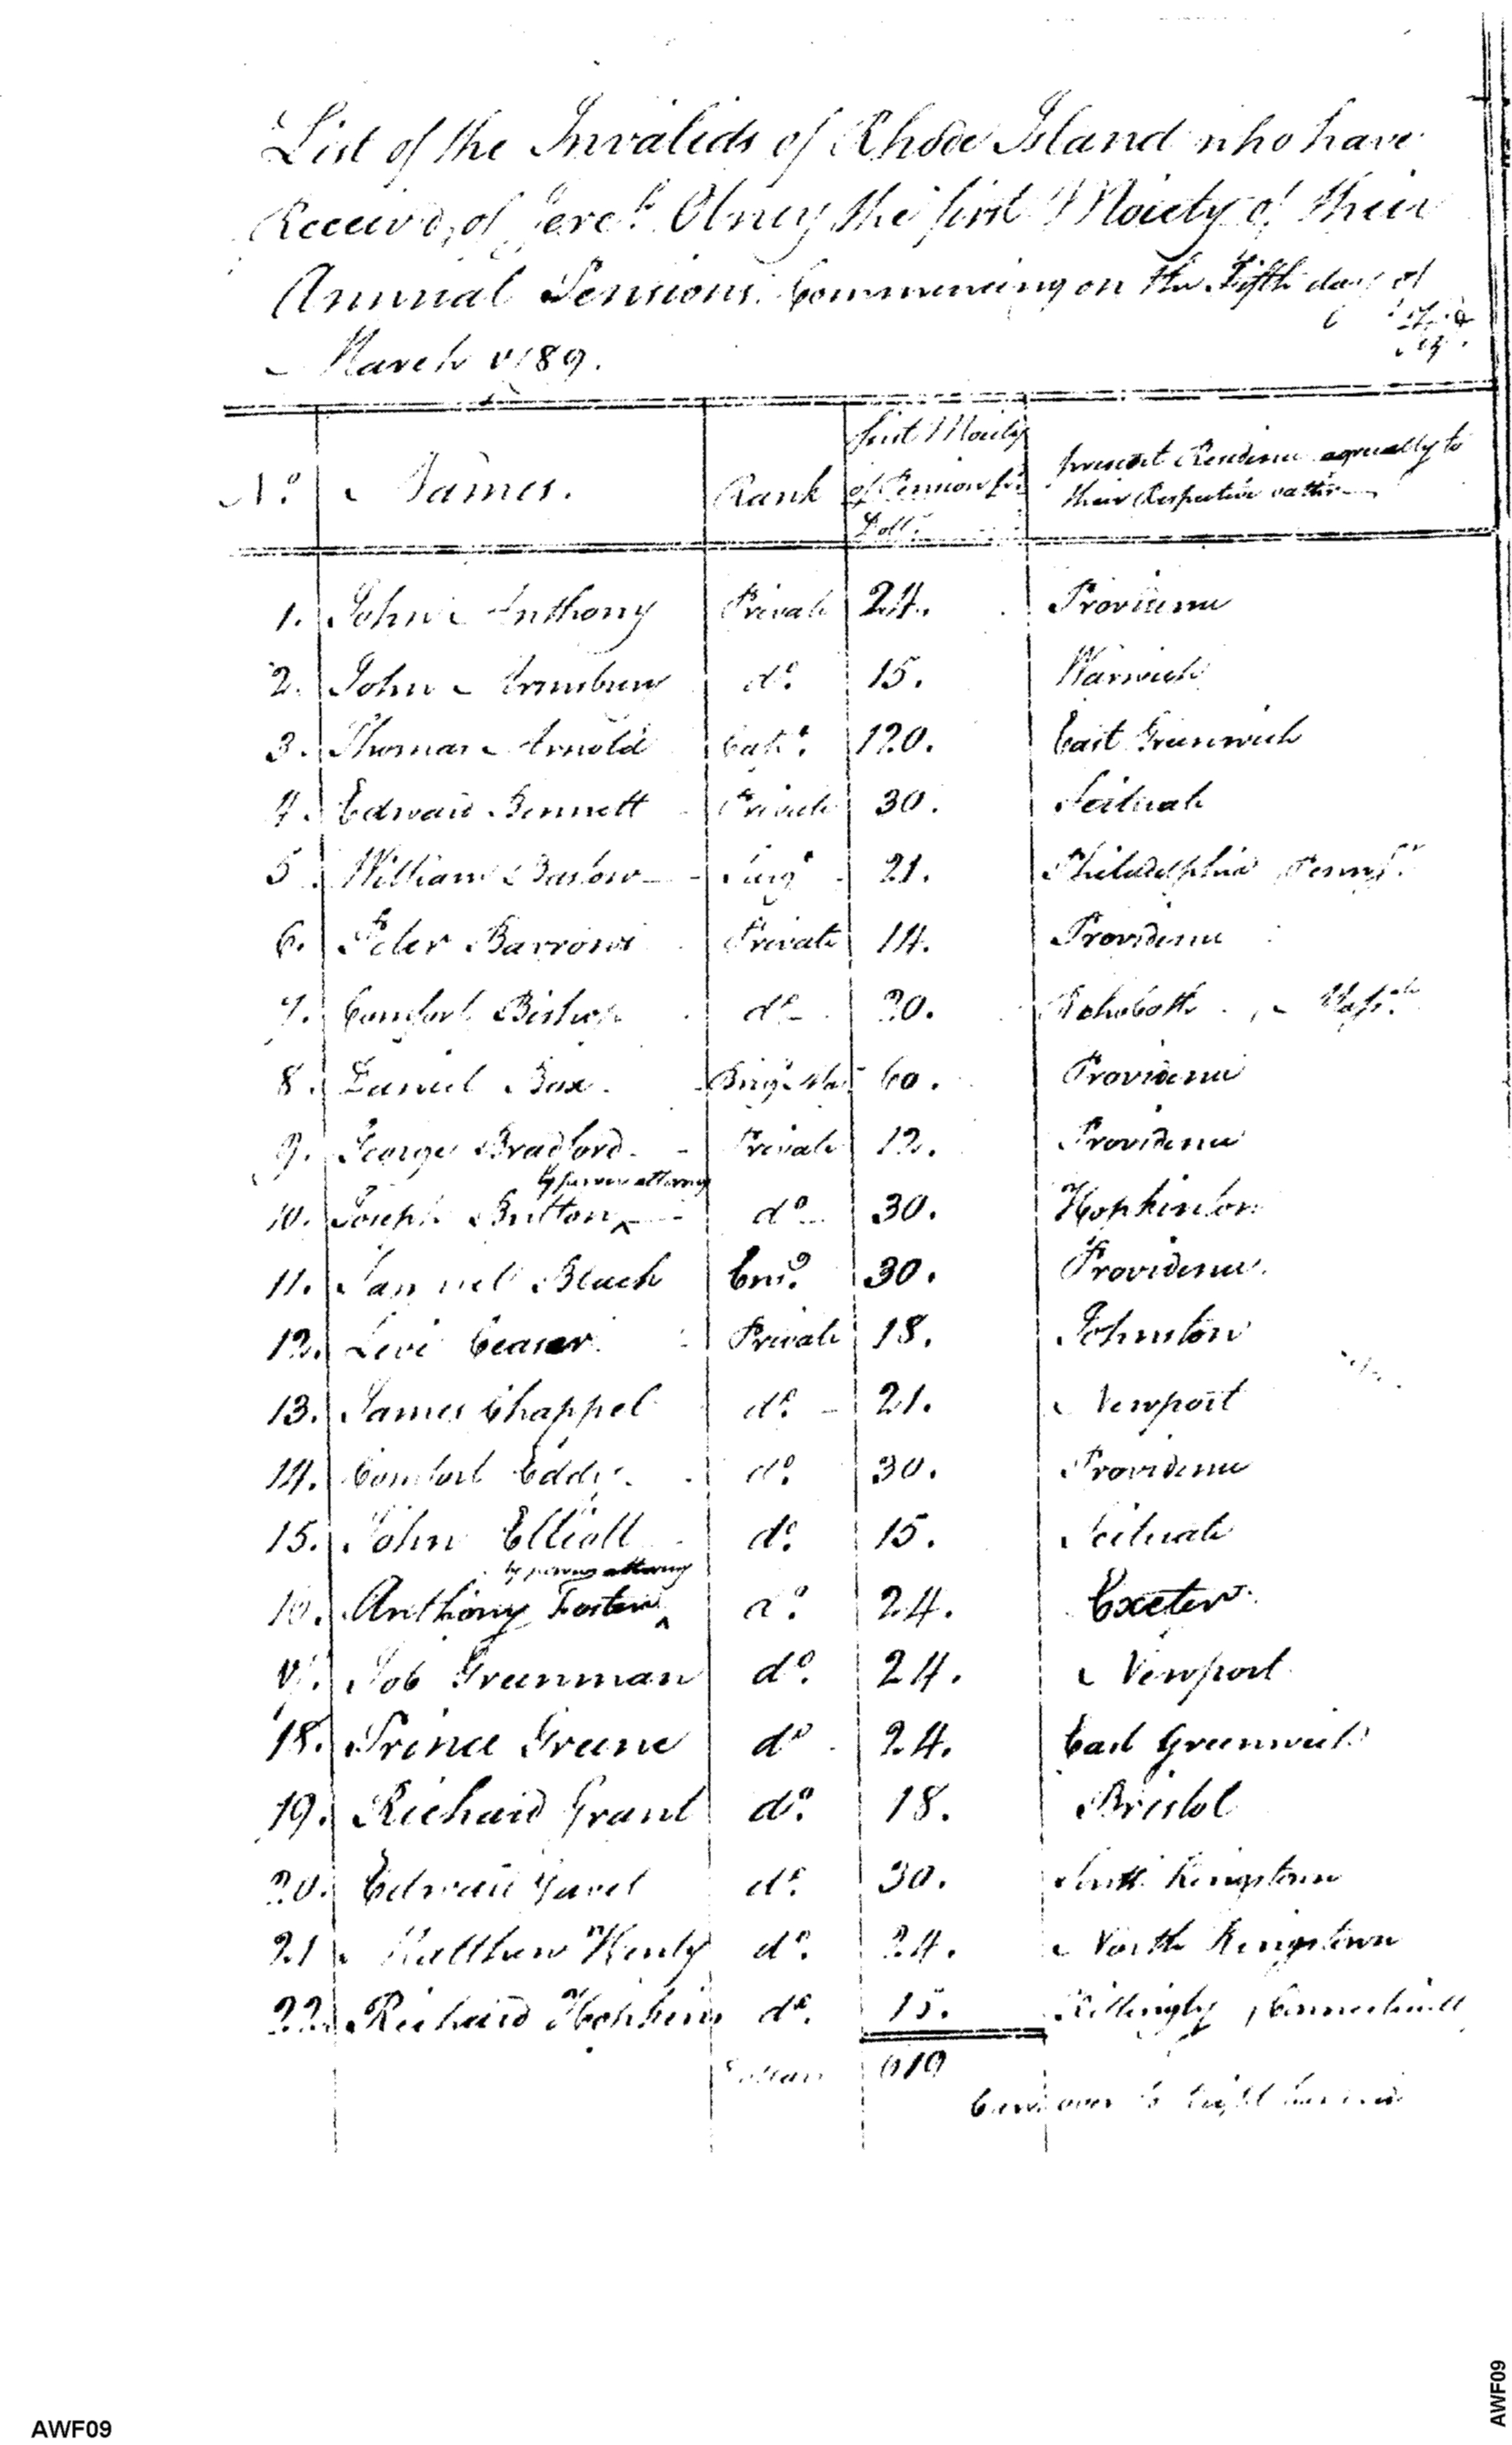 List of the Invalids of Rhode Island who have
Receiv'd, of Jere.h Olney, the first Moiety of their
Annual Pensions. Commencing on the Fifth day of
March 1789.
No. Names. Rank first Moiety of Pension Doll.s present Residence agreeably to their Respective oaths
1. John Anthony Private 24. Providence
2. John Armsbury do. 15. Warwick
3. Thomas Arnold Capt. 120. East Greenwich
4. Edward Bennett Private 30. Scituate
5. William Barlow Sergt 21. Philadelphia Penns.
6. Peter Barrows Private 14. Providence
7. Comfort Bishop do. 20. Rehoboth, Mass.
8. Daniel Box. Brig. Ma. 60. Providence
9. George Bradford. Private 12. Providence
by power attorney
10. Joseph Button ^ do. 30. Hopkinton
11. Samuel Black 30. Providence.
12. Levi Ceaser. Private 18. Johnston
13. James Chappel do. 21. Newport
14. Comfort Eddy. do. 30. Providence
15. John Elliott do. 15. Scituate
by power attorney
16. Anthony Foster ^ do. 24. Exeter.
17. Job Greenman do. 24. Newport
18. Prince Greene do. 24. East Greenwich
19. Richard Grant do. 18. Bristol
20. Edward do. 30. South Kingstown
21. Matthew Henly do. 24. North Kingstown
22. Richard Hopkins do. 15. Killingly, Connecticutt
Dollars 619
over to
AWF09
AWF09